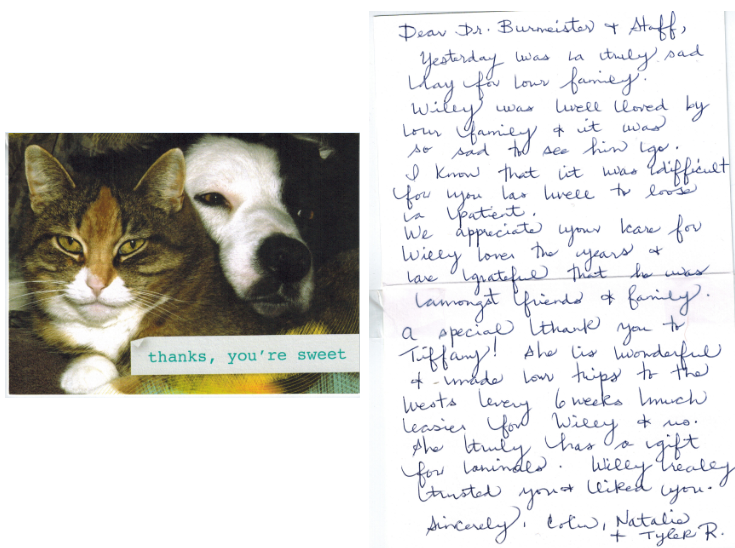 thanks, you're sweet
Dear Dr. Burmeister & Staff,
Yesterday was a truly sad
day for our family.
Willy was well loved by
our family & it was
so sad to see him go.
I know that it was difficult
for you as well to loose
a patient.
We appreciate your care for
Willy over the years &
are grateful that he was
amongst friends & family.
A special thank you to
Tiffany! She is wonderful
& made our trips to the
west levery 6 weeks much
easier for Willy & us.
She truly has a gift
for animals. Willy really
trusted you & liked you.
Sincerely, Colin, Natalie
+ Tyler R.